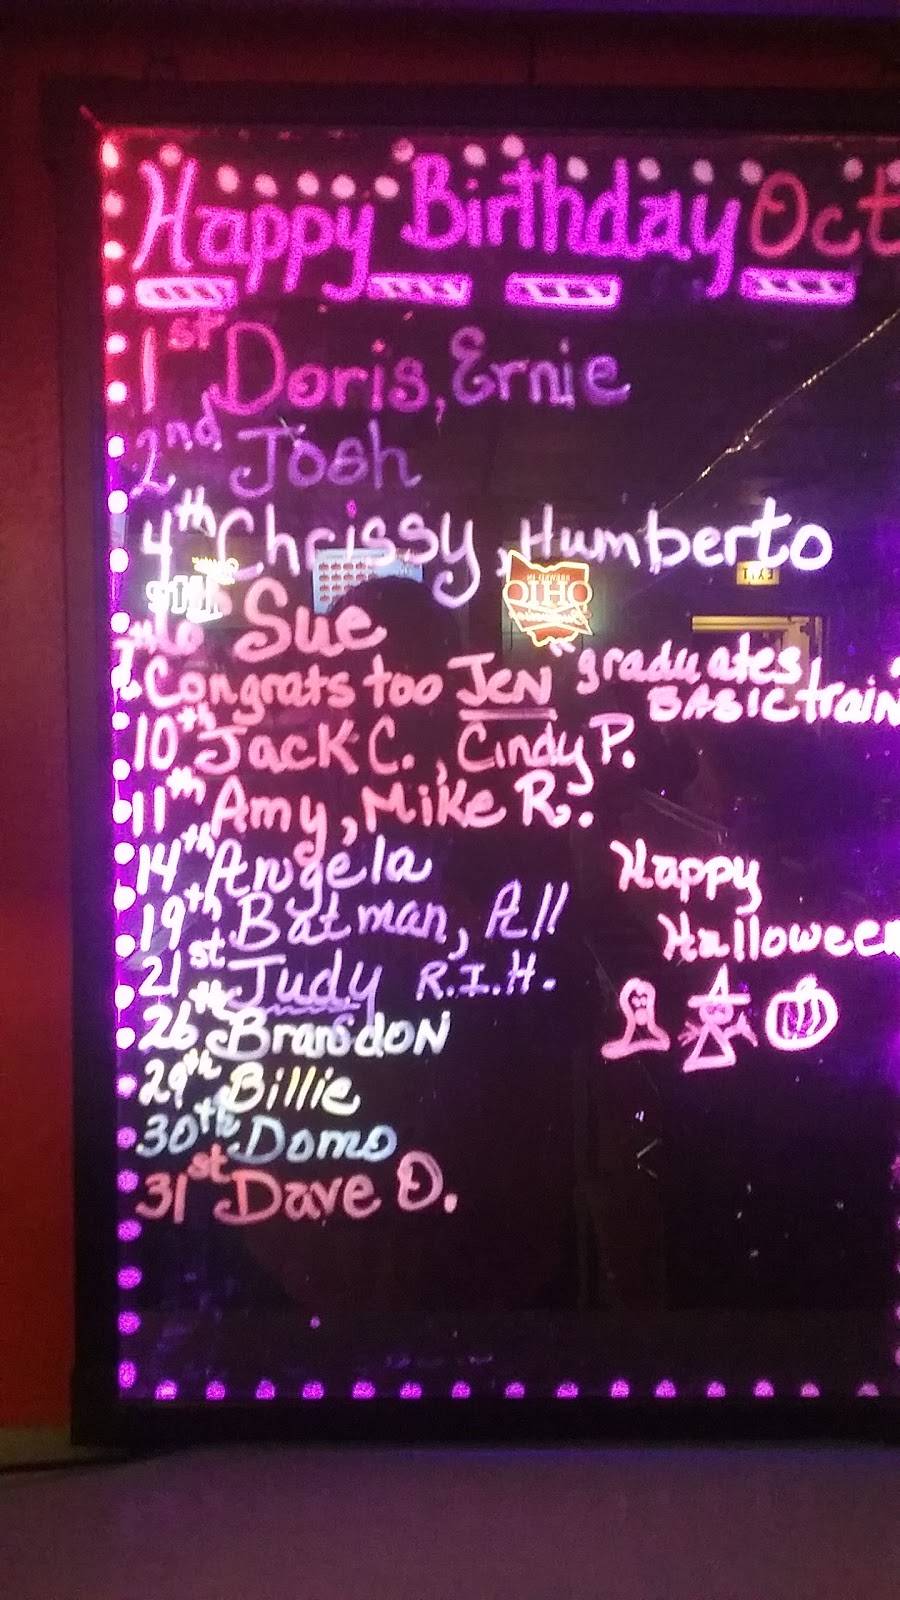 Happy Birthday Oct
1st Doris, Ernie
2nd Josh
4th Chrissy, Humberto
6th Sue
7th Congrats too Jen "graduates,
BASIC train
10th Jack C., Cindy P.
11th Amy, Mike R.
14th Angela
19th Batman, All
21st Judy R.I.H.
26th Brandon
29th Billie
30th Domo
31st Dave O.
Happy
Halloween
OHIO
EXIT